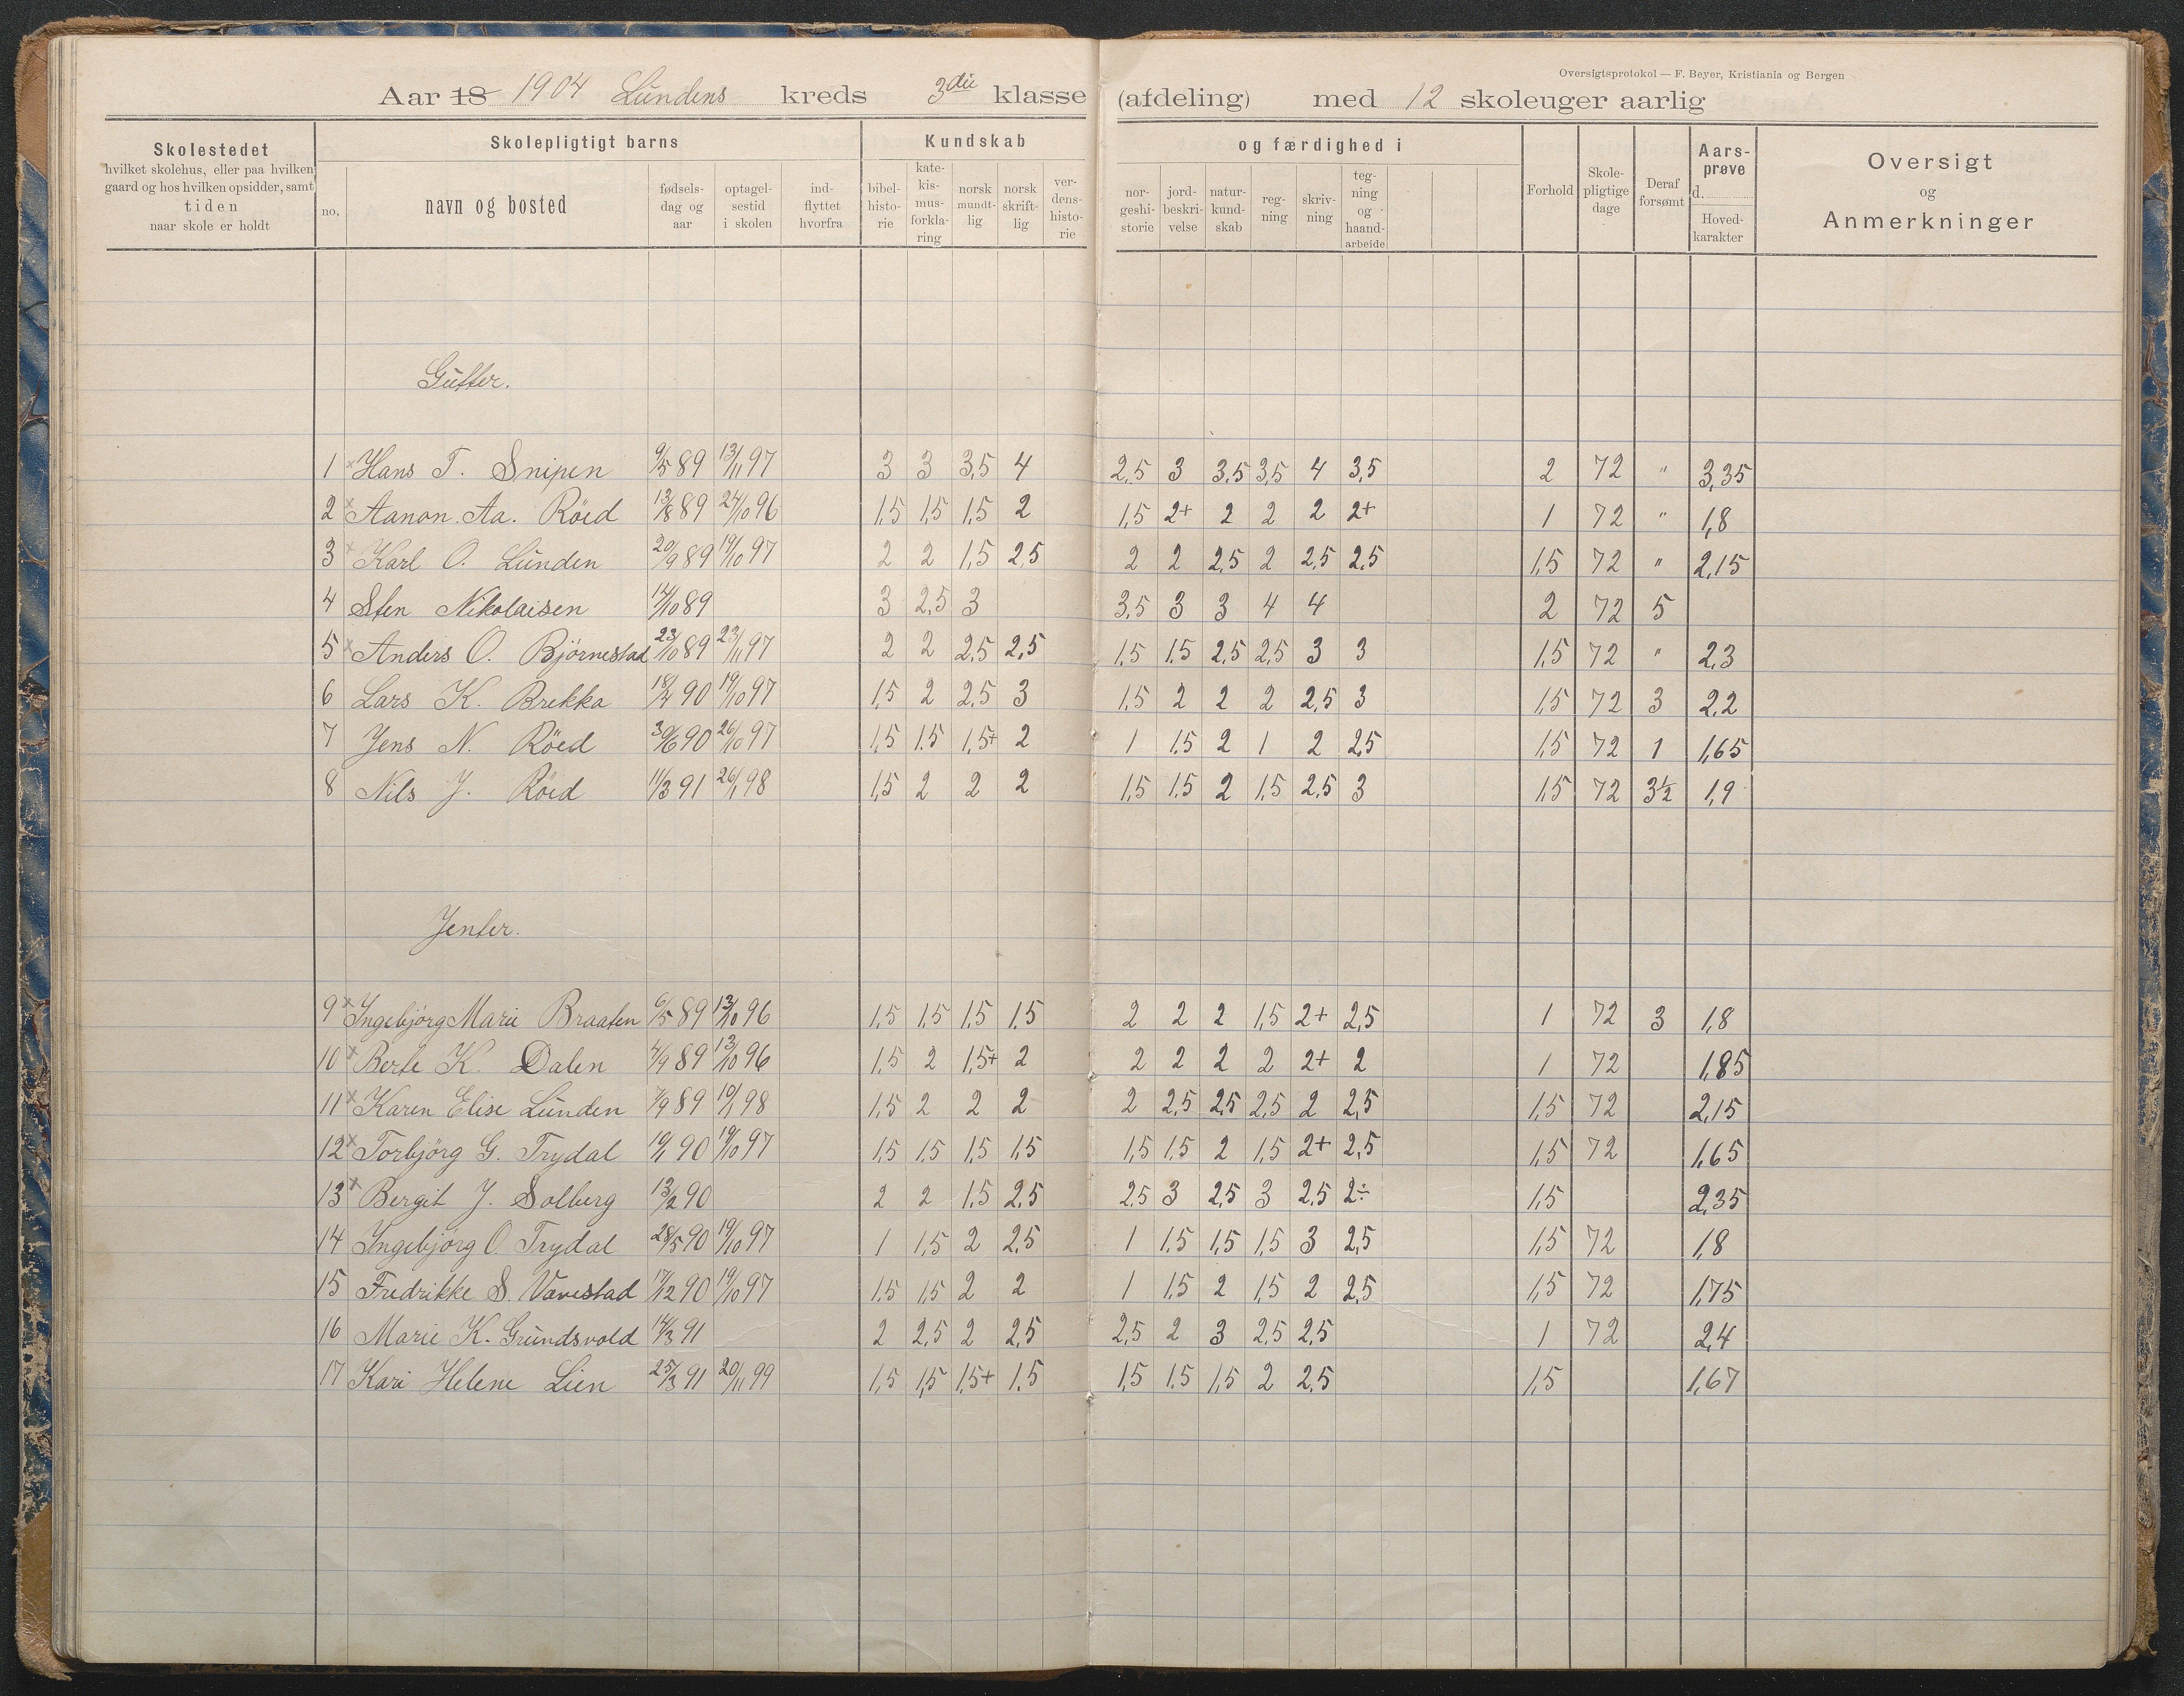 Oversigtsprotokol — F. Beyer, Kristiania og Bergen
Aar 18 1904 Lundens kreds 3die klasse (afdeling) med 12 skoleuger aarlig
Skolestedet
hvilket skolehus, eller paa hvilken
gaard og hos hvilken opsidder, samt
tiden
naar skole er holdt
Skolepligtigt barns
no.
navn og bosted
fødsels-
dag og
aar
optagel-
sestid
i skolen
ind-
flyttet
hvorfra
Kundskab
bibel-
histo-
rie
kate-
kis-
mus-
forkla-
ring
norsk
mundt-
lig
norsk
skrift-
lig
ver-
dens-
histo-
rie
og færdighed i
nor-
geshi-
storie
jord-
beskri-
velse
natur-
kund-
skab
reg-
ning
skriv-
ning
teg-
ning
og
haand-
arbeide
Forhold
Skole-
pligtige
dage
Deraf
forsømt
Aars-
prøve
d.
Hoved-
karakter
Oversigt
og
Anmerkninger
Gutter.
1 x Hans T. Snipen 9/5 89 13/11 97 3 3 3,5 4 2,5 3 3,5 3,5 4 3,5 2 72 " 3,35
2 x Aanon Aa. Röed 13/8 89 24/10 96 1,5 1,5 1,5 2 1,5 2+ 2 2 2 2+ 1 72 " 1,8
3 x Karl O. Lunden 20/9 89 19/10 97 2 2 1,5 2,5 2 2 2,5 2 2,5 2,5 1,5 72 " 2,15
4 Sten Nikolaisen 14/10 89 3 2,5 3 3,5 3 3 4 4 2 72 5
5 x Anders O. Björnestad 23/10 89 23/11 97 2 2 2,5 2,5 1,5 1,5 2,5 2,5 3 3 1,5 72 " 2,3
6 Lars K. Brekka 18/4 90 19/10 97 1,5 2 2,5 3 1,5 2 2 2 2,5 3 1,5 72 3 2,2
7 Jens N. Röed 30/6 90 26/10 97 1,5 1,5 1,5+ 2 1 1,5 2 1 2 2,5 1,5 72 1 1,65
8 Nils J. Röed 11/3 91 26/1 98 1,5 2 2 2 1,5 1,5 2 1,5 2,5 3 1,5 72 3½ 1,9
Jenter.
9 x Ingebjörg Marie Braaten 6/5 89 13/10 96 1,5 1,5 1,5 1,5 2 2 2 1,5 2+ 2,5 1 72 3 1,8
10 x Berte K. Dalen 4/9 89 13/10 96 1,5 2 1,5+ 2 2 2 2 2 2+ 2 1 72 1,85
11 x Karen Elise Lunden 7/9 89 10/1 98 1,5 2 2 2 2 2,5 2,5 2,5 2 2,5 1,5 72 2,15
12 x Torbjörg G. Trydal 19/1 90 19/10 97 1,5 1,5 1,5 1,5 1,5 1,5 2 1,5 2+ 2,5 1,5 72 1,65
13 x Bergit J. Solberg 13/2 90 2 2 1,5 2,5 2,5 3 2,5 3 2,5 2÷ 1,5 2,35
14 Ingebjörg O. Trydal 28/5 90 19/10 97 1 1,5 2 2,5 1 1,5 1,5 1,5 3 2,5 1,5 72 1,8
15 Fredrikke S. Vavestad 17/12 90 19/10 97 1,5 1,5 2 2 1 1,5 2 1,5 2 2,5 1,5 72 1,75
16 Marie K. Grundsvold 14/3 91 2 2,5 2 2,5 2,5 2 3 2,5 2,5 1 72 2,4
17 Kari Helene Lien 25/3 91 20/11 99 1,5 1,5 1,5+ 1,5 1,5 1,5 1,5 2 2,5 1,5 1,67